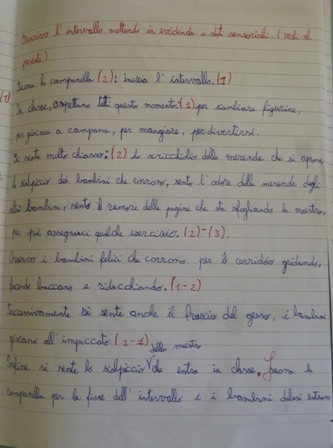 Descrivo l'intervallo mettendo in evidenza i dati sensoriali. (vedi il
Suona la campanella (2): inizia l'intervallo. (1)
In classe, aspettiamo tutti questo momento: (1) per scambiare figurine,
per giocare a campana, per mangiare, per divertirsi.
Si sente molto chiasso: (2) lo scricchiolio delle merende che si aprono,
lo scalpiccio dei bambini che corrono, sento l'odore delle merende degli
altri bambini, sento il rumore delle pagine che sta sfogliando la maestra,
per poi assegnarci qualche esercizio. (2)-(3).
Osservo i bambini felici che corrono per il corridoio gridando,
facendo baccano e ridacchiando. (1-2)
Successivamente si sente anche il fruscio del gesso, i bambini
giocano all'impiccato. (2-1)
della maestra
Infine si sente lo scalpiccio che entra in classe. Suona la
campanella per la fine dell'intervallo e i bambini delusi entrano